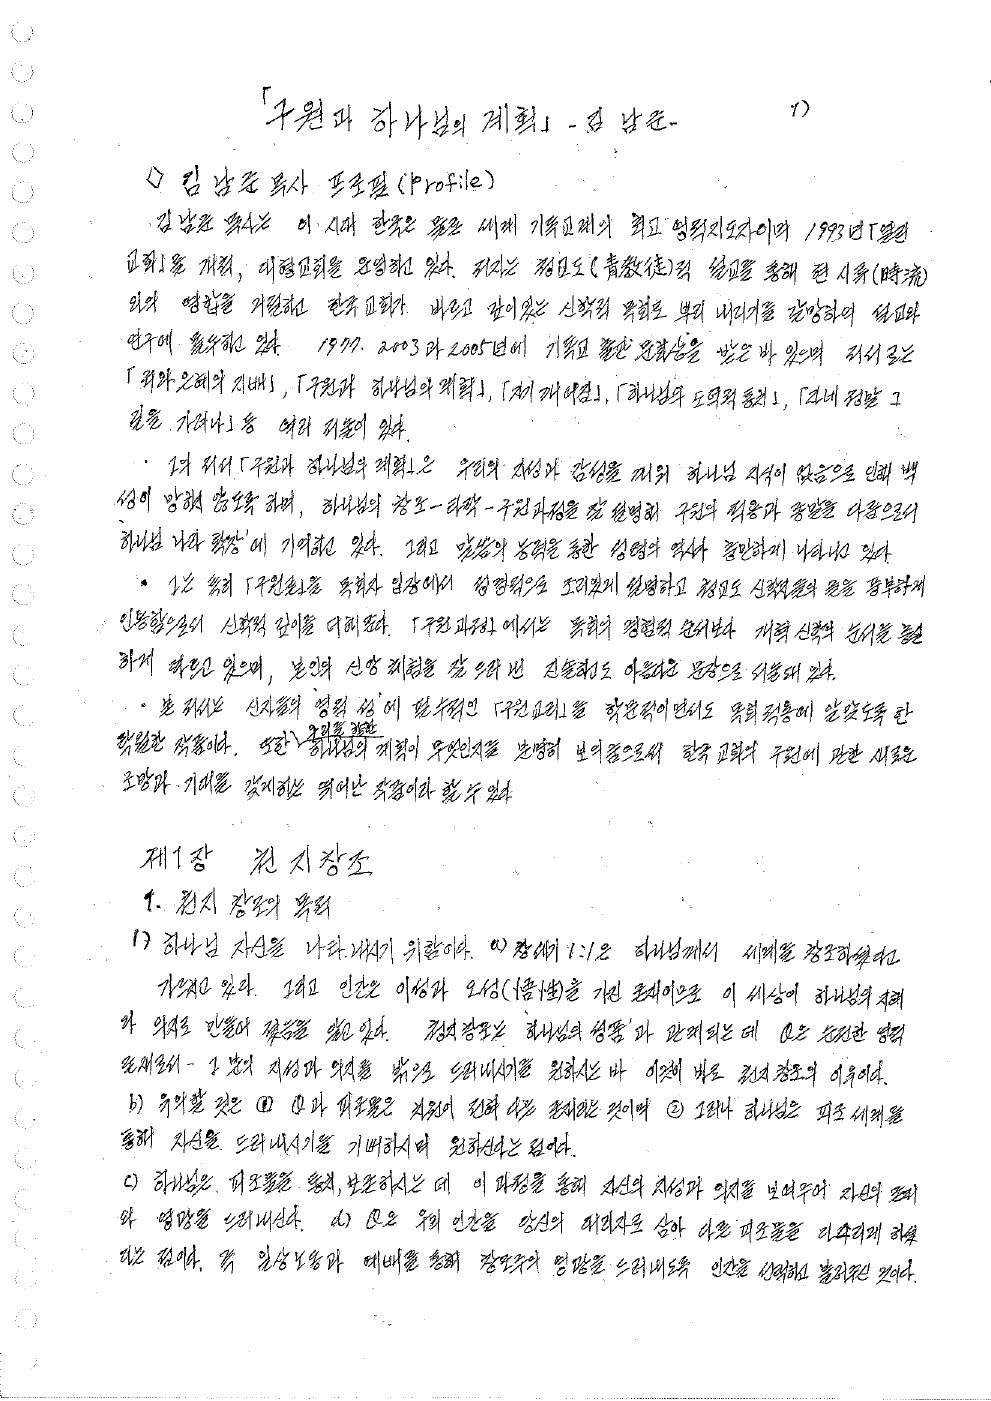 「구원과 하나님의 계획」 - 김 남준 -
1)
◇ 김 남준 목사 프로필 (Profile)
김 남준 목사는 이 시대 한국은 물론 세계 기독교계의 최고 영적지도자이며 1993년 「열린
교회」를 개척, 대형교회를 운영하고 있다. 저자는 청교도(靑敎徒)적 설교를 통해 현 시류(時流)
와의 영합을 거절하고 한국교회가 바르고 깊이있는 신학적 목회로 뿌리 내리기를 갈망하며 설교와
연구에 몰두하고 있다. 1977. 2003과 2005년에 기독교 출판 문화상을 받은 바 있으며 저서로는
「죄와 은혜의 지배」, 「구원과 하나님의 계획」, 「자기 깨어짐」, 「하나님의 도덕적 통치」, 「그네 정말 그
길을 가려나」 등 여러 저술이 있다.
· 그의 저서 「구원과 하나님의 계획」은 우리의 지성과 감성을 깨워 하나님 지식이 없음으로 인해 백
성이 망하지 않도록 하며, 하나님의 창조-타락-구원과정을 잘 설명해 구원의 적용과 종말을 다룸으로서
'하나님 나라 확장'에 기여하고 있다. 그리고 말씀의 능력을 통한 성령의 역사가 충만하게 나타나고 있다.
· 그는 특히 「구원론」을 목회자 입장에서 성경적으로 조리있게 설명하고 청교도 신학자들의 글을 풍부하게
인용함으로서 신학적 깊이를 더해준다. 「구원과정」에서는 목회의 경험적 순서보다 개혁 신학의 순서를 충실
하게 따르고 있으며, 본인의 신앙 체험을 잘 우러낸 진솔하고도 아름다운 문장으로 서술돼 있다.
· 본 저서는 신자들의 '영적 삶'에 필수적인 「구원교리」를 학문적이면서도 목회 적용에 알맞도록 한
탁월한 작품이다. 또한 우리를 향한 하나님의 계획이 무엇인지를 분명히 보여줌으로써 한국 교회의 구원에 관한 새로운
조망과 기대를 갖게하는 뛰어난 작품이라 할 수 있다.
제1장 천지창조
1. 천지 창조의 목적
1) 하나님 자신을 나타내시기 위함이다. a) 창세기 1:1은 하나님께서 세계를 창조하셨다고
가르치고 있다. 그리고 인간은 이성과 오성(悟性)을 가진 존재이므로 이 세상이 하나님의 지혜
와 의지로 만들어 졌음을 알고 있다. 천지창조는 '하나님의 성품'과 관계되는 데 Q은 순전한 영적
존재로서 - 그 만의 지성과 의지를 밖으로 드러내시기를 원하시는 바 이것이 바로 천지 창조의 이유이다.
b) 유의할 것은 ① Q과 피조물은 차원이 전혀 다른 존재라는 것이며 ② 그러나 하나님은 피조 세계를
통해 자신을 드러내시기를 기뻐하시며 원하신다는 점이다.
c) 하나님은 피조물을 통치, 보존하시는 데 이 과정을 통해 자신의 지성과 의지를 보여주어 자신의 존재
와 영광을 드러내신다. d) Q은 우리 인간을 당신의 대리자로 삼아 다른 피조물을 다스리게 하셨
다는 점이다. 즉 일상 노동과 예배를 통해 창조주의 영광을 드러내도록 인간을 선택하고 불러주신 것이다.